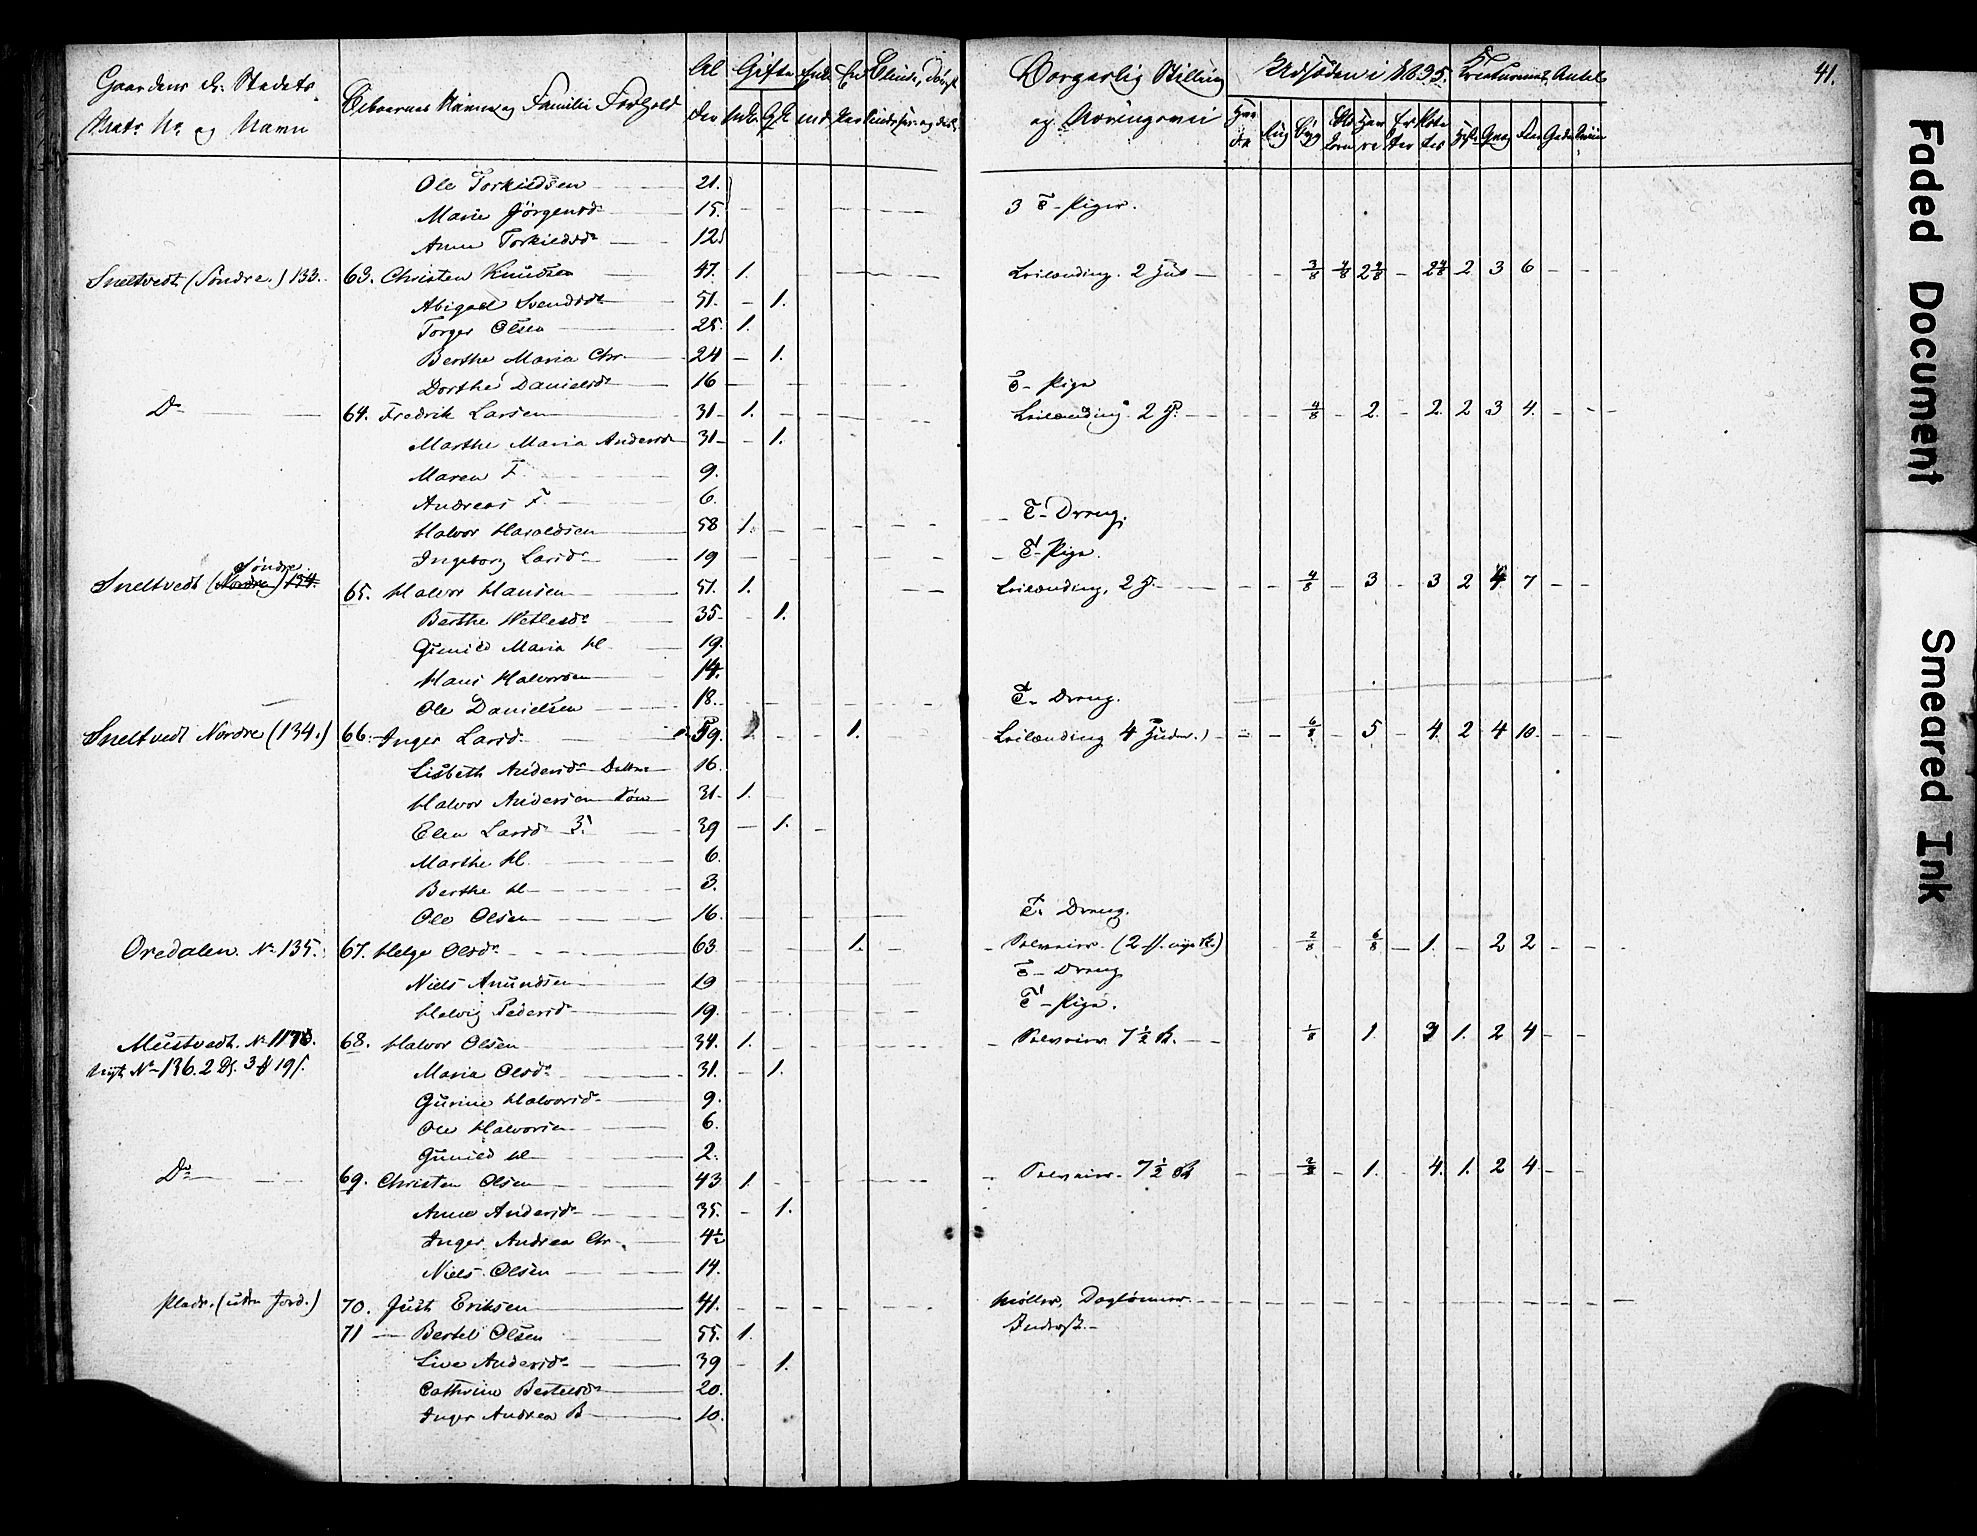 41.
Gaardens og Stedets
Matr No og Navn
Beboernes Navne og Familie Forhold
Al
der
Gifte
Borgerlig Stilling
og Næringsvei
Udsæden i 1835.
Creaturernes Antal
Rug Byg
Ole Torkildsen 21.
Marie Jörgensd. 15. 3 T-Piger.
Anne Torkildsd. 12
Sneltvedt (Söndre.) 133. 63. Christen Knudsen 47. 1. Leilænding. 2 Hud 3/8 4/8 2 4/8 2 4/8 2 3 6
Abigael Svendsd. 51. 1.
Torger Olsen 25. 1.
Berthe Maria Chr. 24 1.
Dorthe Danielsd. 16 T- Pige
Do 64. Fredrik Larsen 31 1. Leilænding. 2 H. 4/8 2. 2. 2 3 4.
Marthe Maria Andersd. 31 1.
Maren F. 9.
Andreas F. 6.
Halvor Haraldsen 58 1. T- Dreng.
Ingeborg Larsd. 19 T- Pige.
Söndre
Sneltvedt (Nordre) 134. 65. Halvor Hansen 51. 1. Leilænding, 2 H. 4/8 3 3 2 4 7
Berthe Netlesd. 35 1.
Gunild Maria H. 19.
Hans Halvorsen 14.
Ole Danielsen 18. T- Dreng.
Sneltvedt Nordre (134.) 66. Inger Larsd. 59. 1. Leilænding 4 Huder. 6/8 5 4. 2 4 10.
Lisbeth Andersd. Datter 16.
Halvor Andersen Sön 31. 1.
Elen Larsd. 39 1.
Marthe H. 6.
Berthe H. 3.
Ole Olsen 16. T. Dreng.
Oredalen. No 135. 67. Helge Olsd. 63 1. Selveier. (2 2/8 6/8 1. 2 2
Niels Amundsen 19 T- Dreng
Helvig Pedersd. 19. T- Pige.
Mustvedt. No 68. Halvor Olsen 34. 1. Selveier 7 1/2 1/8 1. 3 1. 2 4
Nyt No 136. 2 D. 3 19 Maria Olsd. 31. 1.
Gurine Halvorsd. 9.
Ole Halvorsen 6.
Gunild H. 2.
Do 69. Christen Olsen 43 1. Selveier. 7 1/2 2/8 1. 4. 1. 2 4
Anne Andersd. 35. 1.
Inger Andrea Chr. 4 1/2
Niels Olsen 14.
Plads. (uden Jord.) 70. Just Eriksen 41. Möller, Daglönner
71 Bertel Olsen 55. 1. Inderst.
Live Andersd. 39 1.
Cathrine Bertelsd. 20.
Inger Andrea B 10.
Faded Document
Smeared Ink